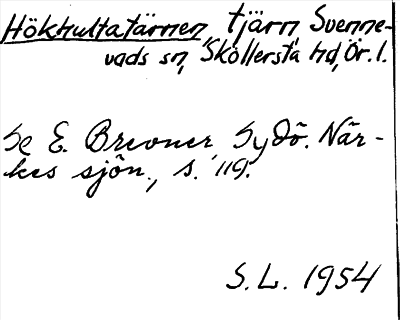 Hökhultatärnen, tjärn Svenne-
vads sn, Sköllersta hd, Ör. l.
Se E. Brevner, Sydö. När-
kes sjön., s. 119.
S.L. 1954